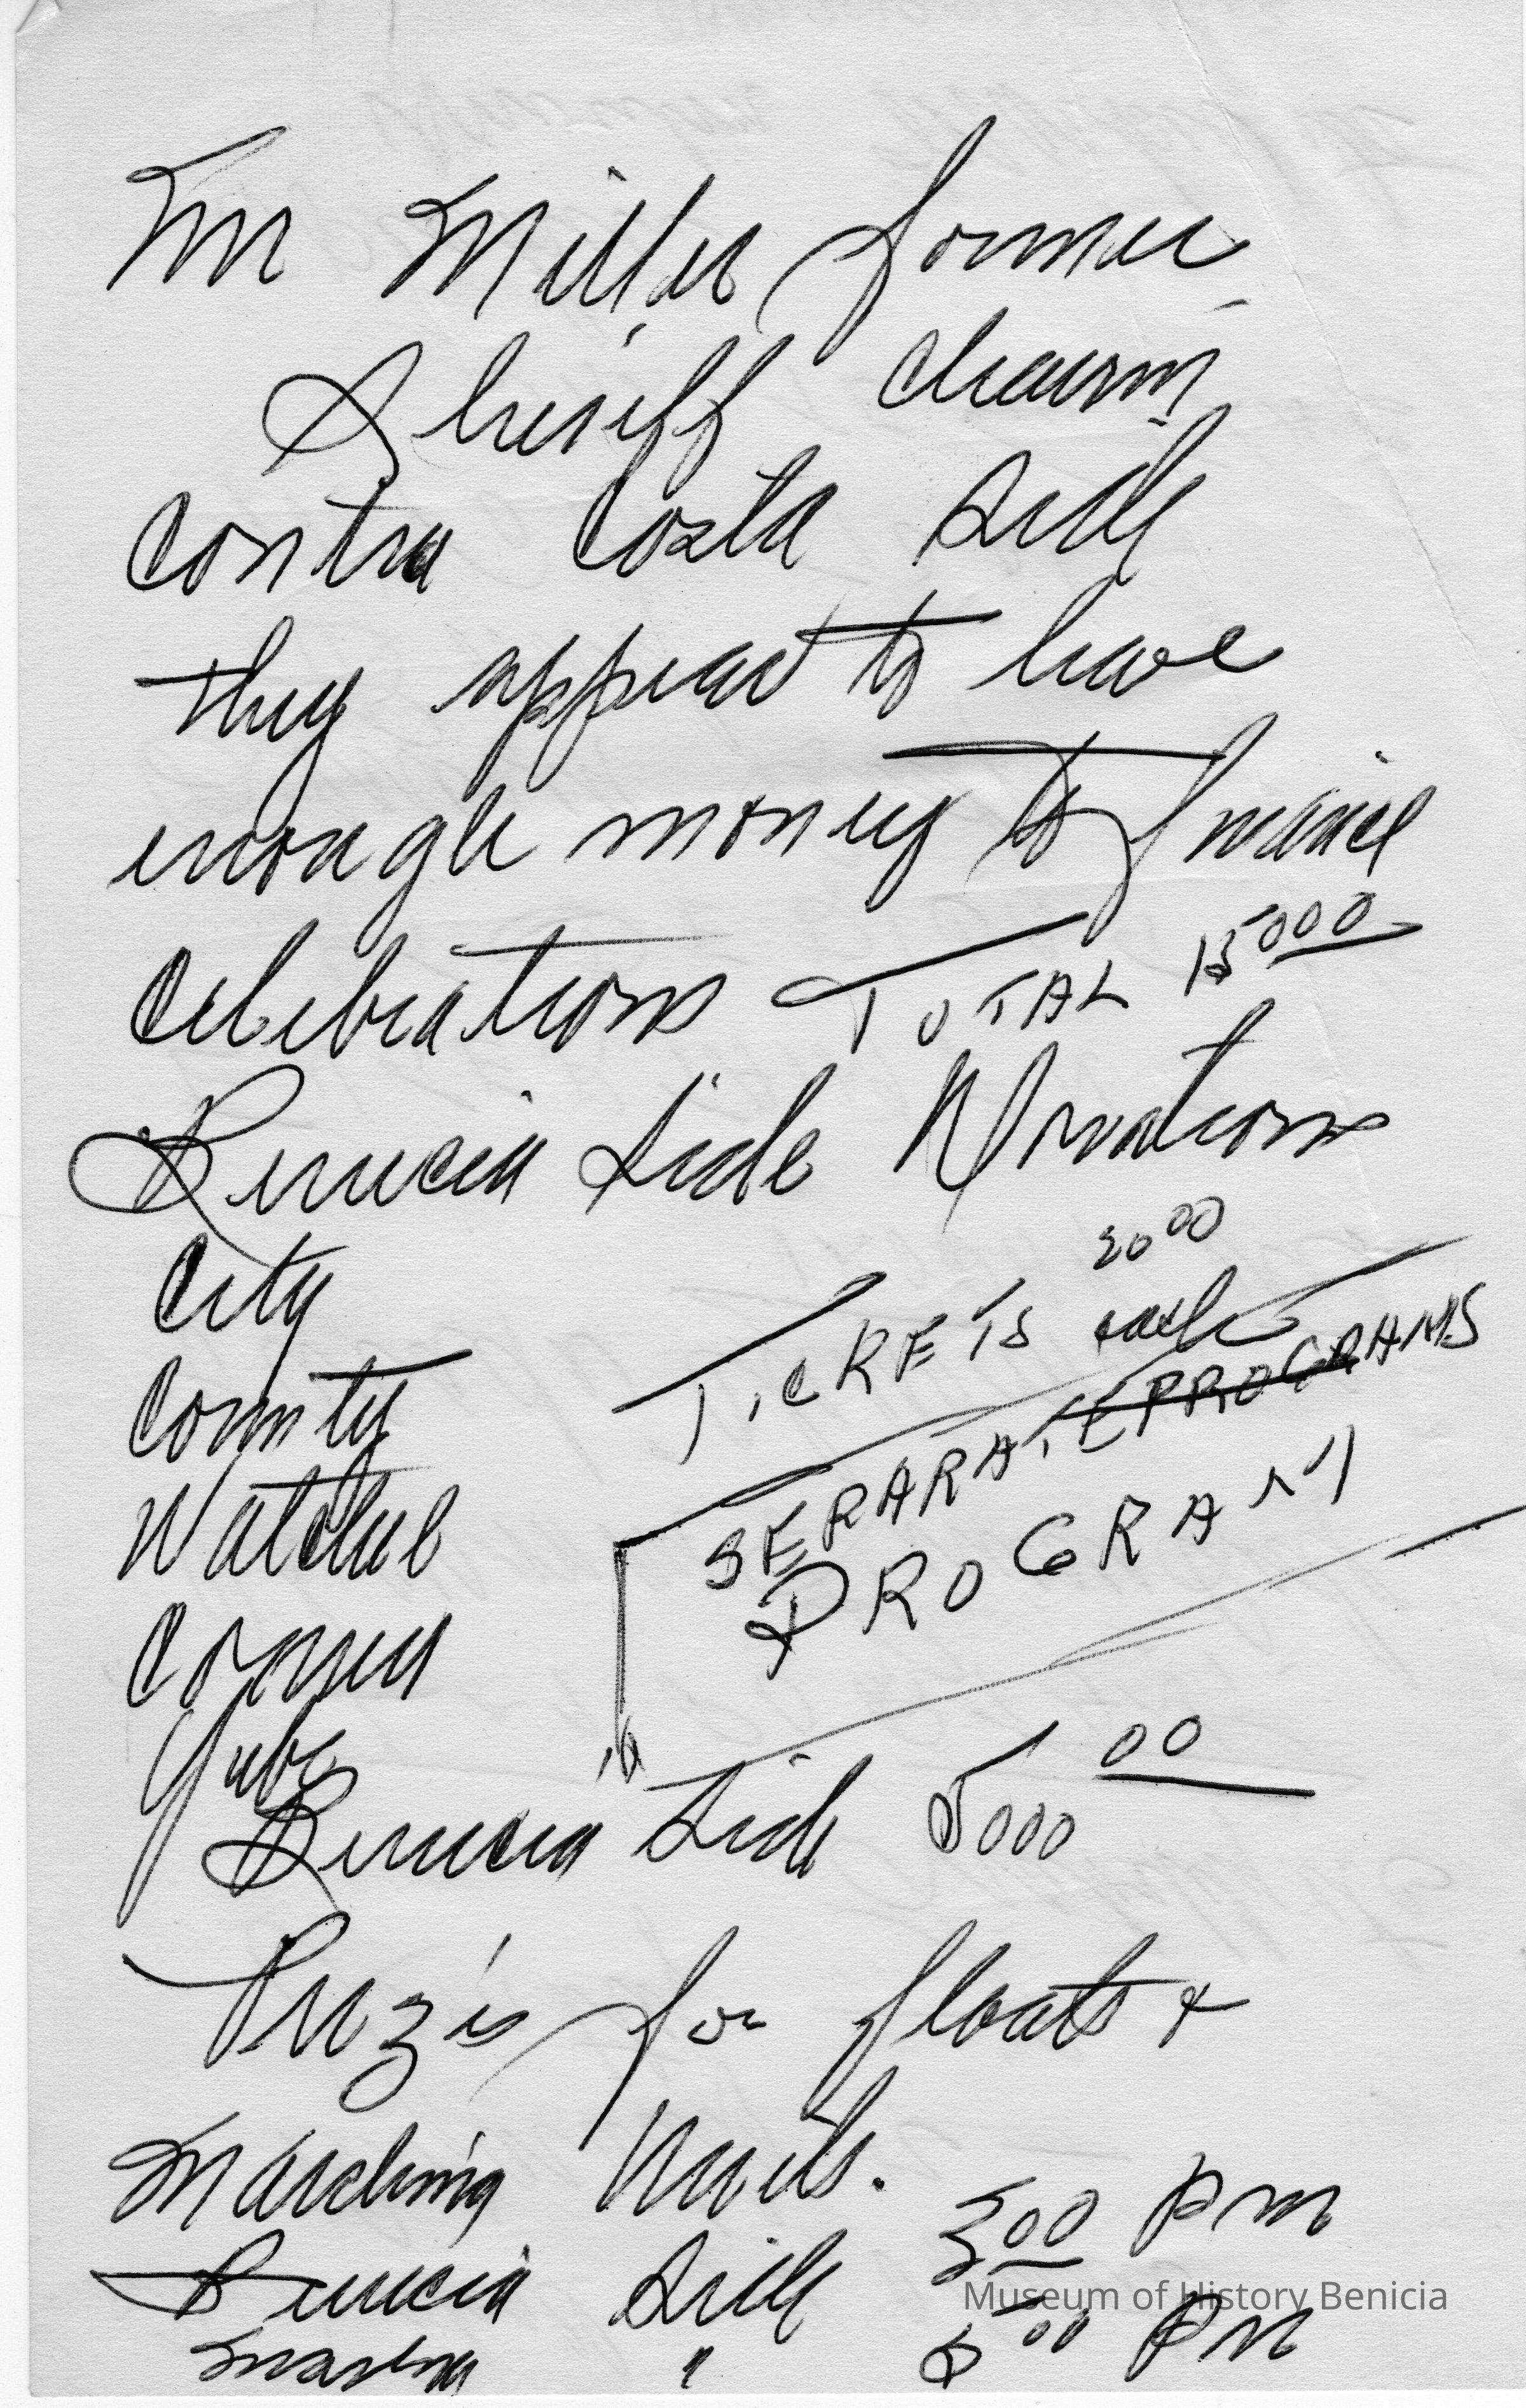 Miller, former
Sheriff chairm,
Contra Costa Side
they appear to have
enough money to finance
Celebrations TOTAL 15000
Benicia Side Donations
City
County
TICKETS 2000 each
SEPARATE PROGRAMS
PROGRAM
Yuba
Benicia Side 5000 00
Prizes for floats +
Marching Units.
Benicia Side 300 Pm
" 500 Pm
Museum of History Benicia